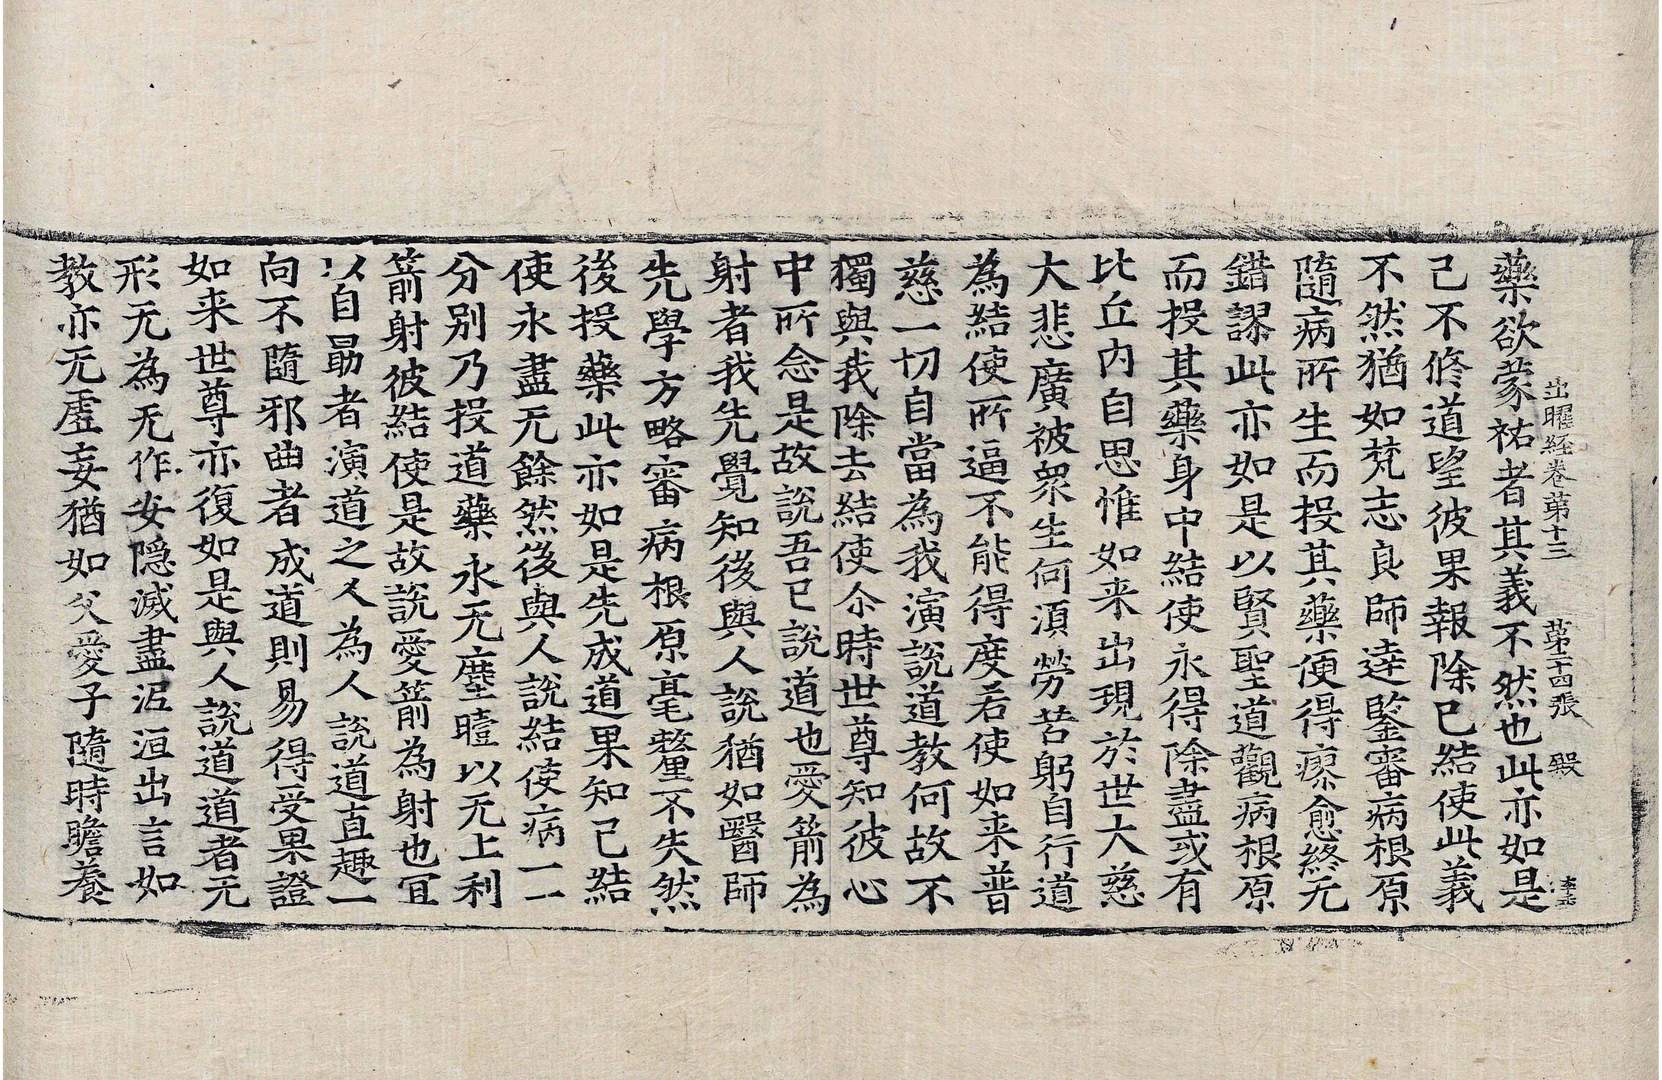 出曜経卷苐十三　苐二十四張　毀
藥欲蒙祐者其義不然也此亦如是
己不修道望彼果報除已結使此義
不然猶如梵志良師逹鑒審病根原
隨病所生而投其藥便得瘳愈終无
錯謬此亦如是以賢聖道觀病根原
而投其藥身中結使永得除盡或有
比丘内自思惟如来出現於世大慈
大悲廣被衆生何湏勞苦躬自行道
為結使所逼不能得度若使如来普
慈一切自當為我演說道教何故不
獨與我除去結使尒時世尊知彼心
中所念是故說吾已說道也愛箭為
射者我先覺知後與人說猶如醫師
先學方略審病根原毫釐不失然
後投藥此亦如是先成道果知已結
使永盡无餘然後與人說結使病一一
分別乃投道藥永无塵曀以无上利
箭射彼結使是故說愛箭為射也冝
以自勗者演道之人為人說道直趣一
向不隨邪曲者成道則易得受果證
如来世尊亦復如是與人說道道者无
形无為无作安隱滅盡泥洹出言如
教亦无虛妄猶如父愛子隨時瞻養